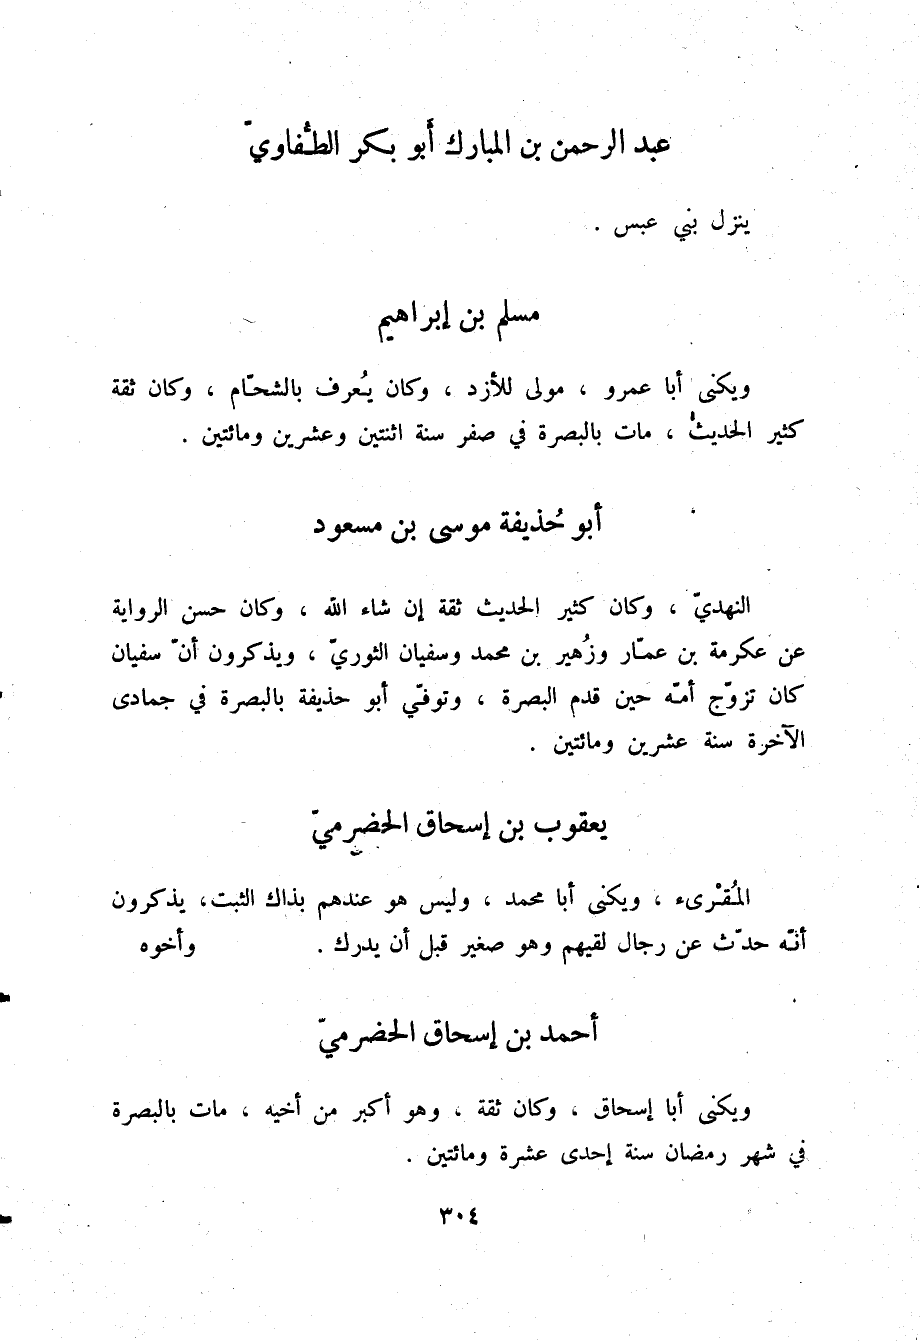 عبد الرحمن بن المبارك أبو بكر الطُفاويّ
ينزل بني عبس .
مسلم بن إبراهيم
ويكنى أبا عمرو ، مولى للأزد ، وكان يُعرف بالشحّام ، وكان ثقة
كثير الحديث ، مات بالبصرة في صفر سنة اثنتين وعشرين ومائتين .
أبو حُذيفة موسى بن مسعود
النهديّ ، وكان كثير الحديث ثقة إن شاء الله ، وكان حسن الرواية
عن عكرمة بن عمّار وزُهير بن محمد وسفيان الثوريّ ، ويذكرون أنّ سفيان
كان تزوّج أمّه حين قدم البصرة ، وتوفّي أبو حذيفة بالبصرة في جمادى
الآخرة سنة عشرين ومائتين .
يعقوب بن إسحاق الحضرميّ
المُقْرىء ، ويكنى أبا محمد ، وليس هو عندهم بذاك الثبت، يذكرون
أنّه حدّث عن رجال لقيهم وهو صغير قبل أن يدرك . وأخوه
أحمد بن إسحاق الحضرميّ
ويكنى أبا إسحاق ، وكان ثقة ، وهو أكبر من أخيه ، مات بالبصرة
في شهر رمضان سنة إحدى عشرة ومائتين .
٣٠٤